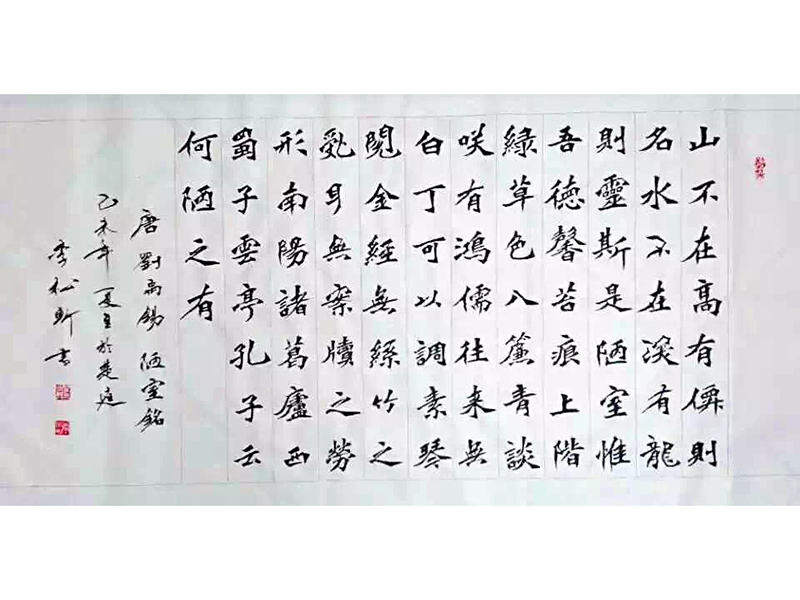 山不在高有僊則
名水不在深有龍
則靈斯是陋室惟
吾德馨苔痕上階
綠草色入簾青談
咲有鴻儒往來無
白丁可以調素琴
閱金經無絲竹之
亂耳無案牘之勞
形南陽諸葛廬西
蜀子雲亭孔子云
何陋之有
唐劉禹錫陋室銘
乙未年夏至於楚庭
李松昕書